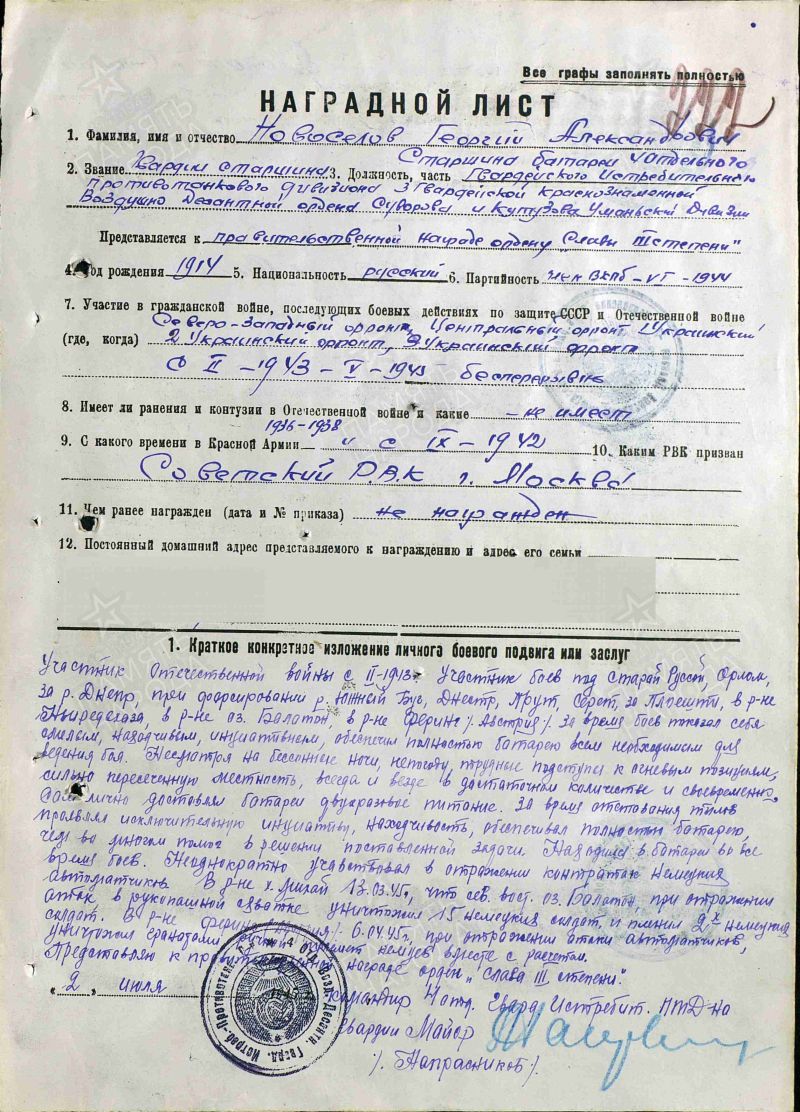 Все графы заполнять полностью
222
НАГРАДНОЙ ЛИСТ
1. Фамилия, имя и отчество Новоселов Георгий Александрович
2. Звание Гвардии старшина 3. Должность, часть Старшина батареи 4 отдельного
Гвардейского Истребительно
Противотанкового дивизиона 3 Гвардейской Краснознаменной
Воздушно Десантной ордена Суворова и Кутузова Уманьской Дивизии
Представляется к правительственной награде ордену "Слава III степени"
4. Год рождения 1914 5. Национальность русский 6. Партийность член ВКПб - VI - 1944
7. Участие в гражданской войне, последующих боевых действиях по защите СССР и Отечественной войне
Северо-Западный фронт, Центральный фронт, 1 Украинский
(где, когда) 2 Украинский фронт, 3 Украинский фронт
с II - 1943 - V - 1945 бесперерывно
8. Имеет ли ранения и контузии в Отечественной войне и какие - не имеет
1936-1938
9. С какого времени в Красной Армии " с IX - 1942 10. Каким РВК призван
Советский Р.В.К г. Москва
11. Чем ранее награжден (дата и № приказа) не награжден
12. Постоянный домашний адрес представляемого к награждению и адрес его семьи
1. Краткое конкретное изложение личного боевого подвига или заслуг
Участник Отечественной войны с II-1943г. Участник боев под Старой Руссой, Орлом,
за р. Днепр, при форсировании р. Южный Буг, Днестр, Прут, Серет, за Плоешти, в р-не
Ньиредьгаза, в р-не оз. Балатон, в р-не Феринг /Австрия/. За время боев показал себя
смелым, находчивым, инициативным, обеспечил полностью батарею всем необходимым для
ведения боя. Несмотря на бессонные ночи, непогоду, трудные подступы к огневым позициям,
сильно пересеченную местность, всегда и везде в достаточном количестве и своевременно,
сам лично доставлял батареи двухразовое питание. За время отставания тылов
проявлял исключительную инициативу, находчивость, обеспечивал полностью батарею,
чем во многом помог в решении поставленной задачи. Находился в батарее во все
время боев. Неоднократно участвовал в отражении контратак немецких
автоматчиков. В р-не х. Михай 13.03.45г, что сев. вост. оз. Балатон, при отражении
атак, в рукопашной схватке уничтожил 15 немецких солдат, и пленил 2х немецких
солдат. В р-не Феринг 6.04.45г., при отражении атаки автоматчиков,
уничтожил гранатами пулемет немцев вместе с расчетом.
Представляю к правительственной награде орден "Слава III степени".
"2" июля
Командир 4 отд. Гвард. Истребит. ПТД-на
Гвардии Майор
/Напрасников/.